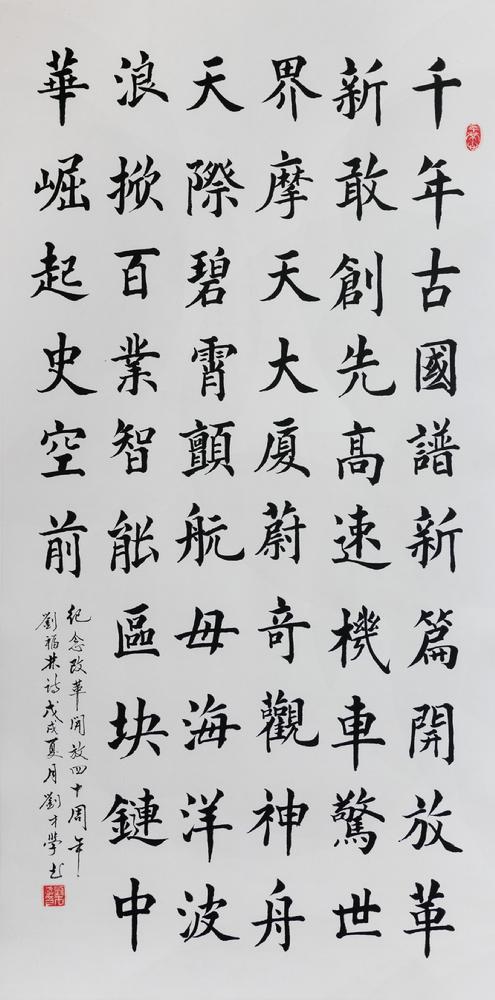 千年古國譜新篇開放革
新敢創先高速機車驚世
界摩天大厦蔚奇觀神舟
天際碧霄顫航母海洋波
浪掀百業智能區块鏈中
華崛起史空前
紀念改革開放四十周年
劉福林詩戊戌夏月劉才學书